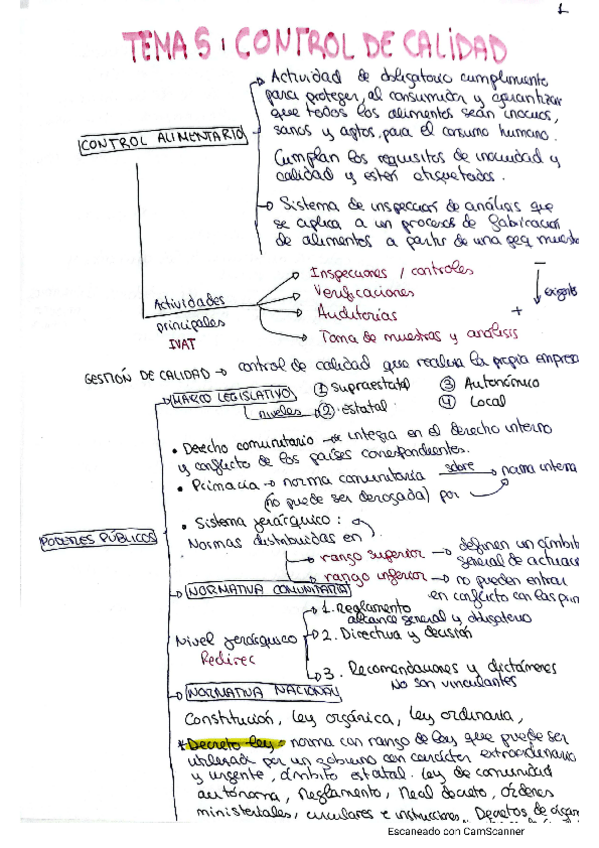 1
TEMA 5: CONTROL DE CALIDAD
Actividad de obligatorio cumplimiento
para proteger al consumidor y garantizar
que todos los alimentos sean inocuos,
CONTROL ALIMENTARIO
sanos y aptos para el consumo humano.
Cumplan los requisitos de inocuidad y
calidad y estén etiquetados.
Sistema de inspección de análisis que
se aplica a un proceso de fabricación
de alimentos a partir de una peq muestra
Inspecciones / controles
Verificaciones
Auditorías
Toma de muestras y análisis
- + exigente
Actividades
principales
IVAT
GESTIÓN DE CALIDAD → control de calidad que realiza la propia empresa
MARCO LEGISLATIVO
niveles
① supraestatal ③ Autonómico
② estatal ④ Local
• Derecho comunitario → se integra en el derecho interno
y conflicto de los países correspondientes.
• Primacía → norma comunitaria sobre → norma interna
(no puede ser derogada) por
• Sistema jerárquico:
Normas distribuidas en
PODERES PÚBLICOS
rango superior → definen un ámbito
general de actuac
rango inferior → no pueden entrar
en conflicto con las
NORMATIVA COMUNITARIA
Nivel jerárquico
Redirec
1. Reglamento
alcance general y obligatorio
2. Directiva y decisión
3. Recomendaciones y dictámenes
No son vinculantes
NORMATIVA NACIONAL
Constitución, ley orgánica, ley ordinaria,
*Decreto ley → norma con rango de ley que puede ser
utilizada por un gobierno con carácter extraordinario
y urgente, ámbito estatal. Ley de comunidad
autónoma, Reglamento, Real decreto, órdenes
ministeriales, circulares e instrucciones. Decretos de
Escaneado con CamScanner